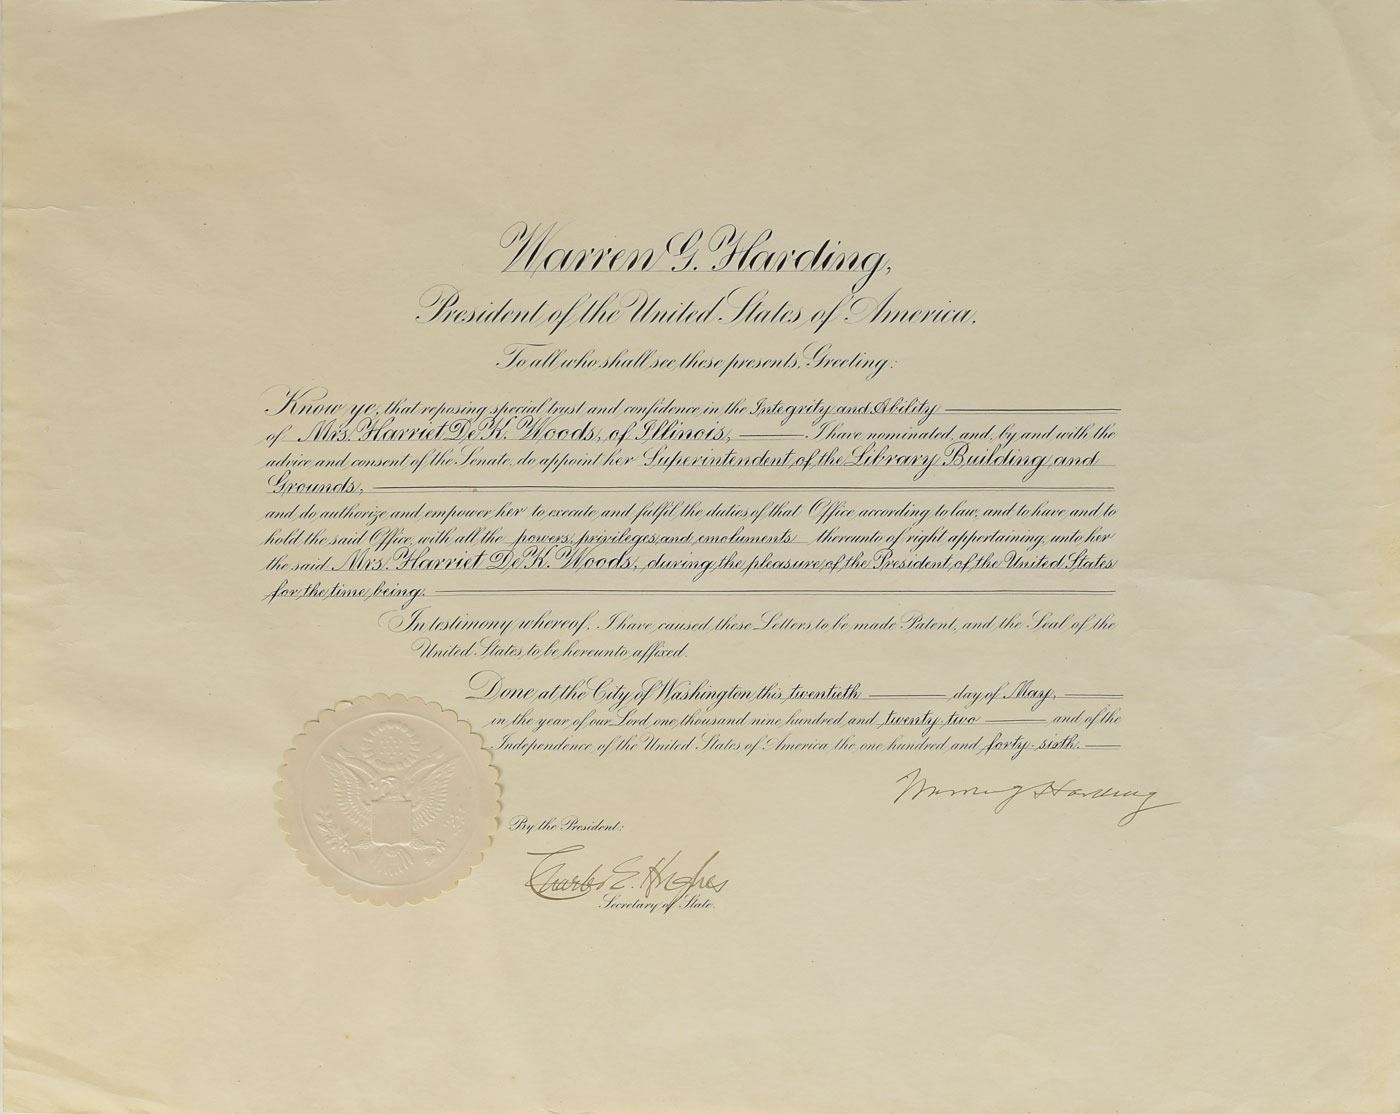 Warren G. Harding,
President of the United States of America,
To all who shall see these presents, Greeting:
Know ye, that reposing special trust and confidence in the Integrity and Ability
of Mrs. Harriet De K. Woods, of Illinois, I have nominated, and, by and with the
advice and consent of the Senate, do appoint her Superintendent of the Library Building and
Grounds,
and do authorize and empower her to execute and fulfil the duties of that Office according to law, and to have and to
hold the said Office, with all the powers, privileges, and emoluments thereunto of right appertaining, unto her
the said Mrs. Harriet De K. Woods, during the pleasure of the President of the United States
for the time being.
In testimony whereof, I have caused these Letters to be made Patent, and the Seal of the
United States to be hereunto affixed.
Done at the City of Washington this twentieth day of May,
in the year of our Lord one thousand nine hundred and twenty two and of the
Independence of the United States of America the one hundred and forty-sixth.
Warren G Harding
By the President:
Charles E. Hughes
Secretary of State.